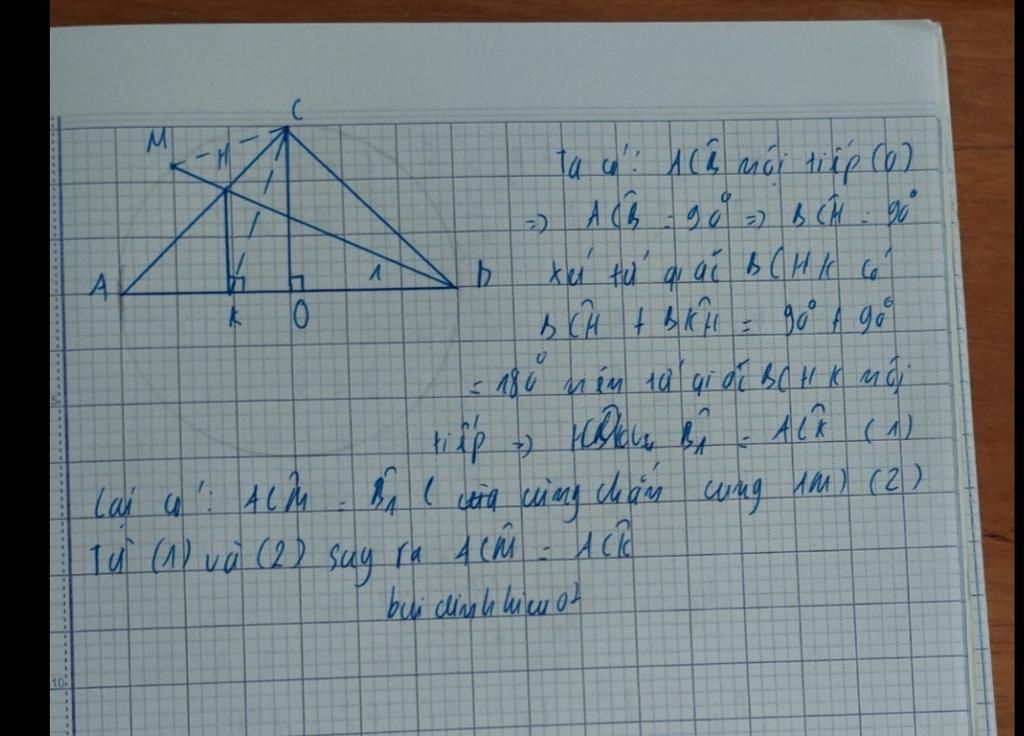 C
M
H
A
1
B
K
O
Ta có: AĈB nội tiếp (O)
=> AĈB = 90° => BĈH = 90°
Xét tứ giác BCHK có
BĈH + BK̂H = 90° + 90°
= 180° nên tứ giác BCHK nội
tiếp => B̂1 = AĈK (1)
Lại có: AĈM = B̂1 ( cùng chắn cung AM) (2)
Từ (1) và (2) suy ra AĈM = AĈK
buidinhhieu07
10